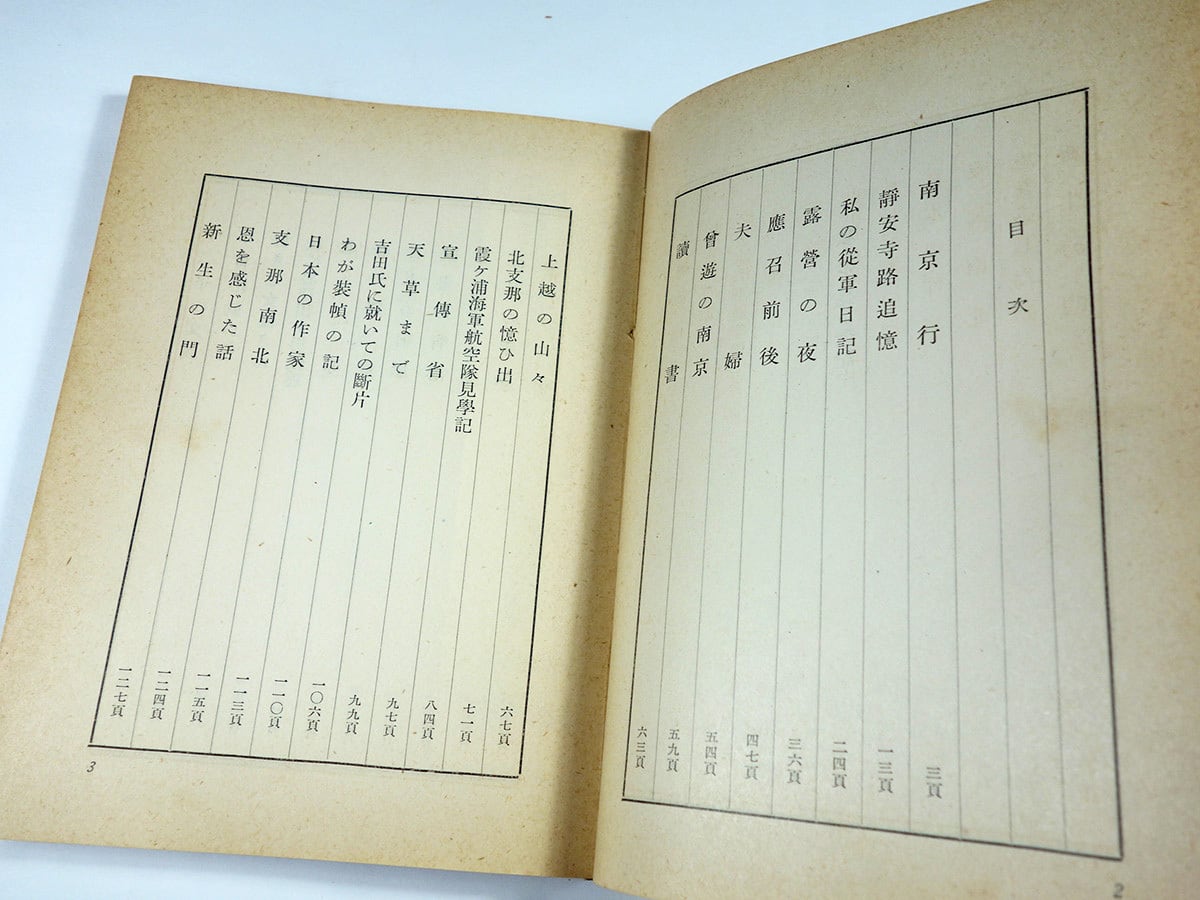 目次
南京行 三頁
靜安寺路追憶 一三頁
私の從軍日記 二四頁
露營の夜 三六頁
應召前後 四七頁
夫婦 五四頁
曾遊の南京 五九頁
讀書 六三頁
2
上越の山々 六七頁
北支那の憶ひ出 七一頁
霞ヶ浦海軍航空隊見學記 八四頁
宣傳省 九七頁
天草まで 九九頁
吉田氏に就いての斷片 一〇六頁
わが裝幀の記 一一〇頁
日本の作家 一一三頁
支那南北 一一五頁
恩を感じた話 一二四頁
新生の門 一二七頁
3